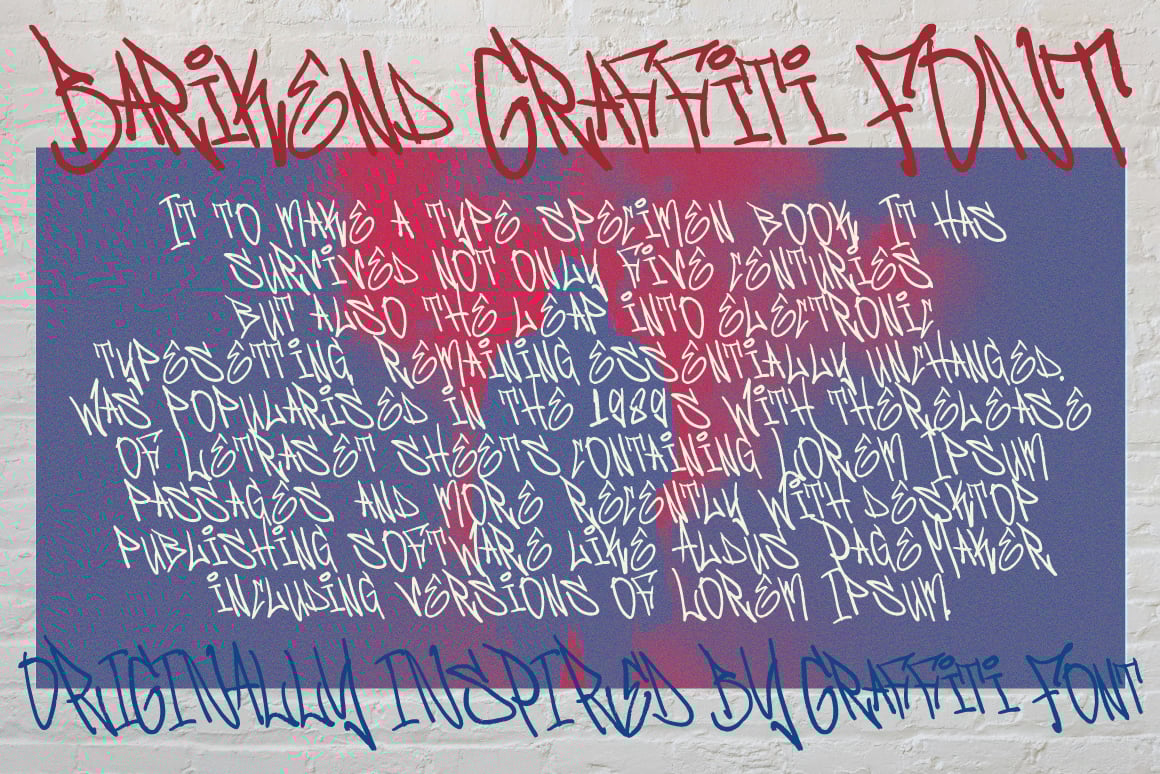 Barikend Graffiti Font
It to make a type specimen book. It has
survived not only five centuries
but also the leap into electronic
typesetting. remaining essentially unchanged.
was popularised in the 1989s with therelease
of Letraset sheets containing Lorem Ipsum
passages and more recently with desktop
publishing software like Aldus PageMaker
including versions of Lorem Ipsum.
ORIGINALLY INSPIRED BY Graffiti Font